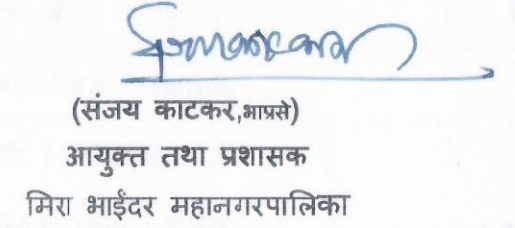 (संजय काटकर,भाप्रसे)
आयुक्त तथा प्रशासक
मिरा भाईंदर महानगरपालिका